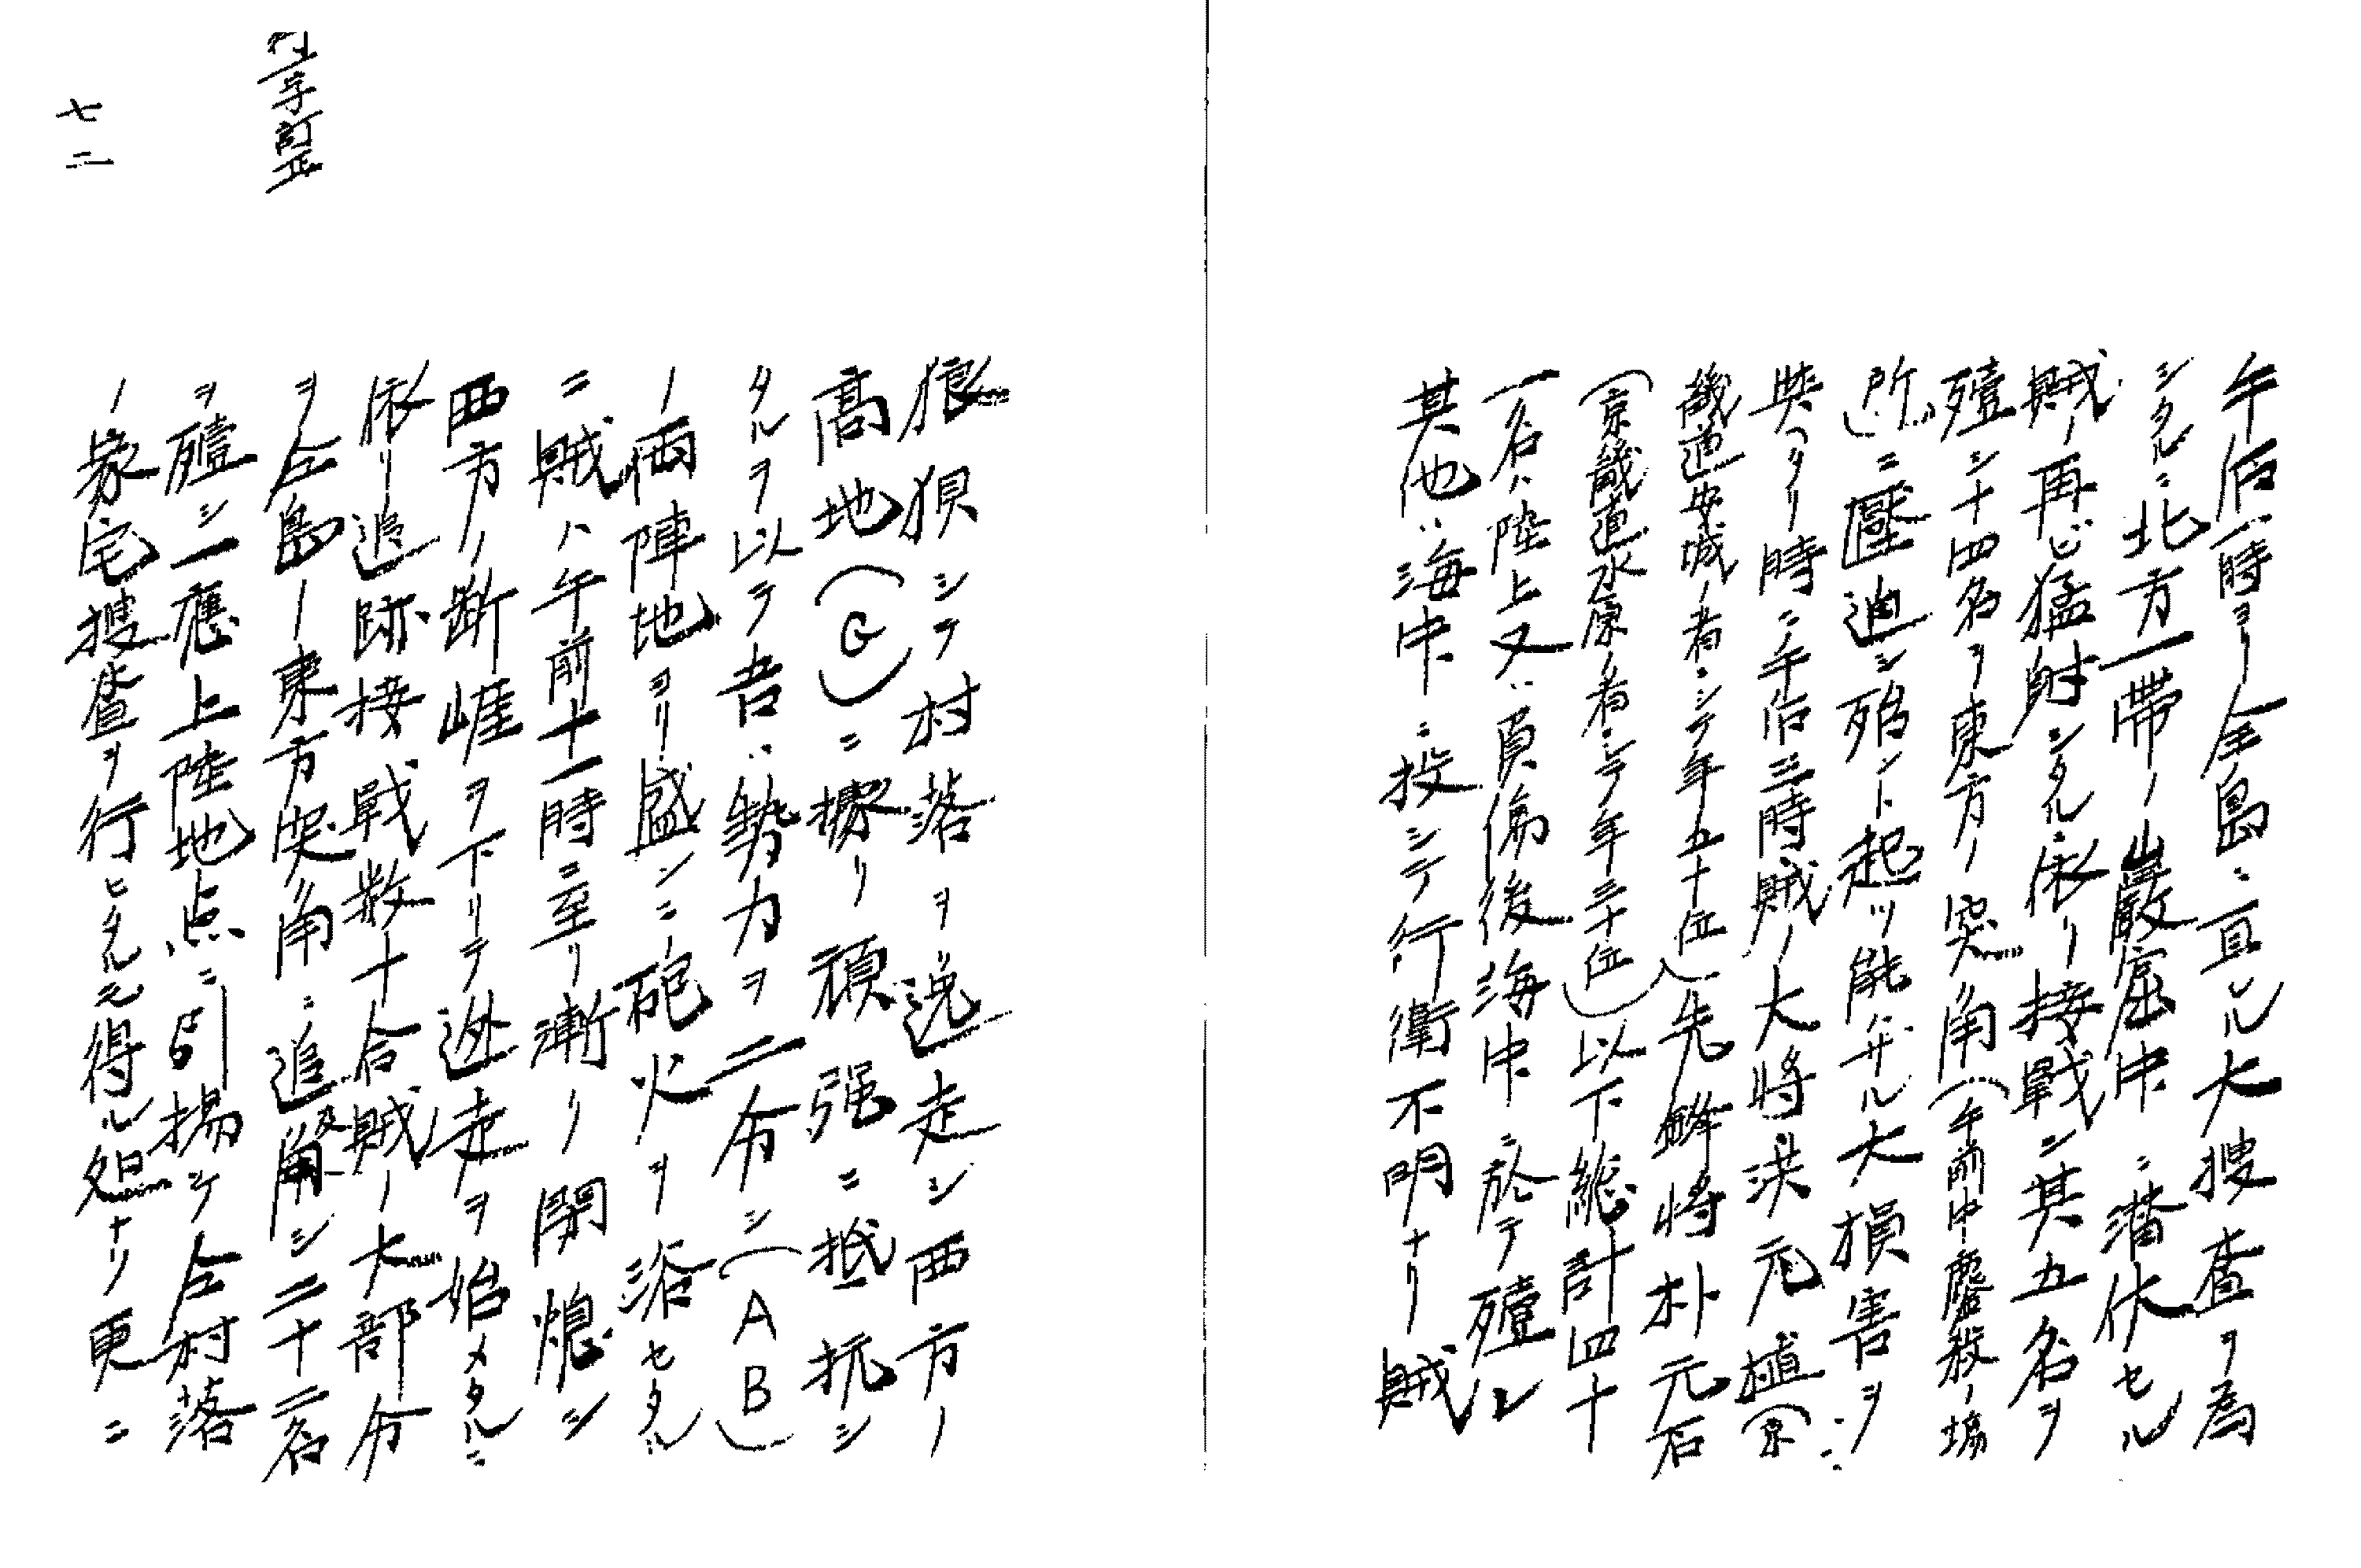 午后一時ヨリ全島ニ亘ル大搜査ヲ為
シタルニ北方一帶ノ巖窟中ニ潜伏セル
賊ノ再ビ猛射シタルニ依リ接戰シ其五名ヲ
殪シ十四名ヲ東方ノ突角(午前中鏖殺ノ場
所)ニ壓迫シ殆ント起ツ能ハザル大損害ヲ
與ヘタリ時ニ午后三時賊ノ大将洪元植(京
畿道安城ノ者ニシテ年五十位)先鋒将朴元石
(京畿道水原ノ者ニシテ年三十位)以下總計四十
一名ハ陸上又ハ負傷後海中ニ於テ殪レ
其他ハ海中ニ投シテ行衛不明ナリ賊
狼狽シテ村落ヲ逸走シ西方ノ
高地(G)ニ據リ頑强ニ抵抗シ
タルヲ以テ吾ハ勢力ヲ二分シ(AB)
ノ両陣地ヨリ盛ンニ砲火ヲ浴セタル
ニ賊ハ午前十一時ニ至リ漸ク閉熄シ
西方ノ断崖ヲ下リテ逃走ヲ始メタルニ
依リ追跡接戦数十合賊ノ大部分
ヲ仝島ノ東方突角ニ追及シ二十二名
ヲ殪シ一應上陸地点ニ引揚ケ仝村落
ノ家宅搜査ヲ行ヒタルモ得ル処ナリ更ニ
字訂正
七二